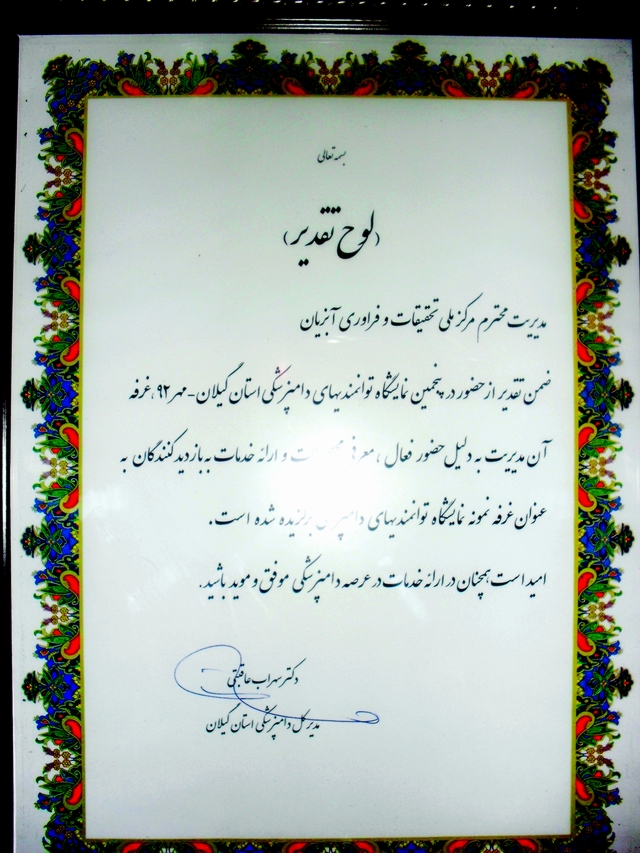 بسمه تعالی
(لوح تقدیر)
مدیریت محترم مرکز ملی تحقیقات و فراوری آبزیان
ضمن تقدیر از حضور در پنجمین نمایشگاه توانمندیهای دامپزشکی استان گیلان-مهر ۹۲، غرفه
آن مدیریت به دلیل حضور فعال، معرفی و ارائه خدمات به بازدیدکنندگان به
عنوان غرفه نمونه نمایشگاه توانمندیهای دامپزشکی برگزیده شده است.
امید است همچنان در ارائه خدمات در عرصه دامپزشکی موفق و موید باشید.
دکتر سهراب
مدیرکل دامپزشکی استان گیلان